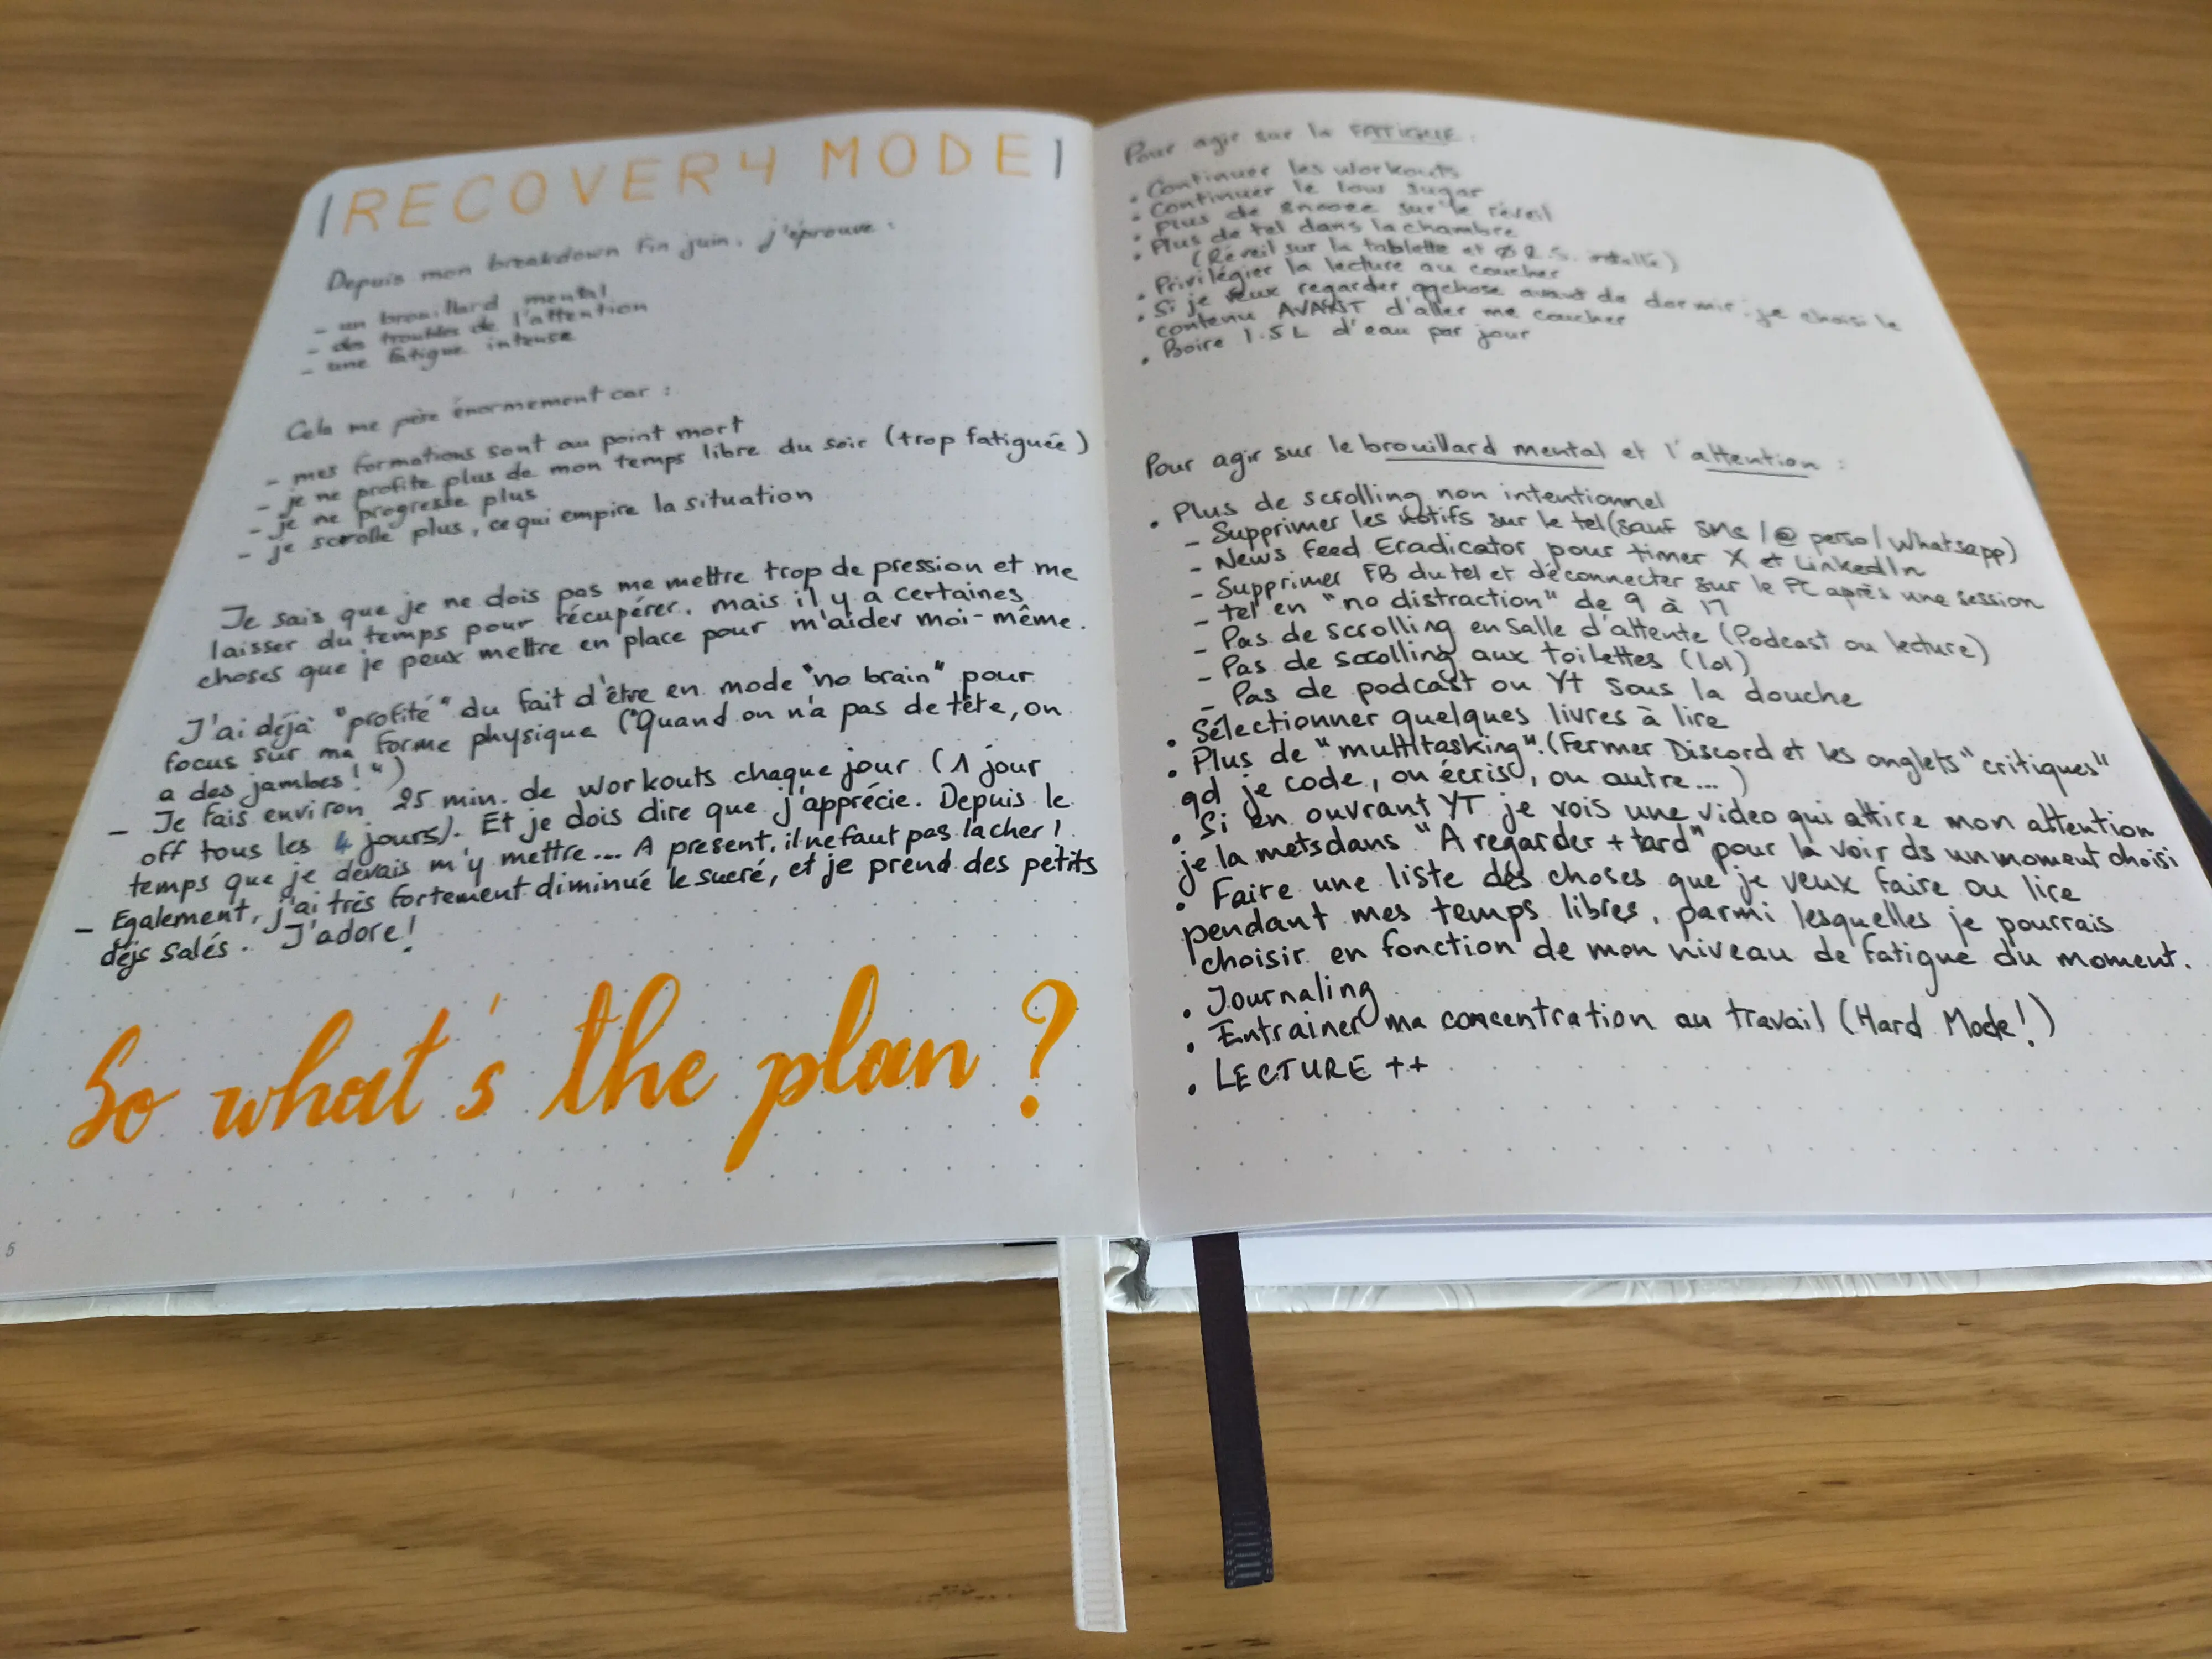 |RECOVERY MODE|
Depuis mon breakdown fin juin, j'éprouve :
- un brouillard mental
- des troubles de l'attention
- une fatigue intense
Cela me pèse énormement car :
- mes formations sont au point mort
- je ne profite plus de mon temps libre du soir (trop fatiguée)
- je ne progresse plus
- je scrolle plus, ce qui empire la situation
Je sais que je ne dois pas me mettre trop de pression et me
laisser du temps pour récupérer, mais il y a certaines
choses que je peux mettre en place pour m'aider moi-même.
J'ai déjà "profité" du fait d'être en mode "no brain" pour
focus sur ma forme physique ("Quand on n'a pas de tête, on
a des jambes!")
- Je fais environ 25 min. de workouts chaque jour (1 jour
off tous les 4 jours). Et je dois dire que j'apprécie. Depuis le
temps que je devais m'y mettre... A present, il ne faut pas lacher !
- Egalement, j'ai très fortement diminué le sucré, et je prend des petits
déjs salés. J'adore!
So what's the plan ?
5
Pour agir sur la FATIGUE :
• Continuer les workouts
• Continuer le low sugar
• Plus de snooze sur le réveil
• Plus de tel dans la chambre
(Réveil sur la tablette et Ø R.S. )
• Privilégier la lecture au coucher
• Si je veux regarder qqchose avant de dormir, je choisi le
contenu AVANT d'aller me coucher
• Boire 1.5 L d'eau par jour
Pour agir sur le brouillard mental et l'attention :
• Plus de scrolling non intentionnel
- Supprimer les notifs sur le tel (sauf SMS / @ perso / Whatsapp)
- News Feed Eradicator pour timer X et LinkedIn
- Supprimer FB du tel et déconnecter sur le PC après une session
- tel en "no distraction" de 9 à 17
- Pas de scrolling en salle d'attente (Podcast ou lecture)
- Pas de scrolling aux toilettes (lol)
- Pas de podcast ou YT sous la douche
• Sélectionner quelques livres à lire
• Plus de "multitasking". (Fermer Discord et les onglets "critiques"
qd je code, ou écris, ou autre...)
• Si en ouvrant YT je vois une video qui attire mon attention
je la mets dans "A regarder + tard" pour la voir ds un moment choisi
• Faire une liste des choses que je veux faire ou lire
pendant mes temps libres, parmi lesquelles je pourrais
choisir en fonction de mon niveau de fatigue du moment.
• Journaling
• Entrainer ma concentration au travail (Hard Mode!)
• LECTURE ++